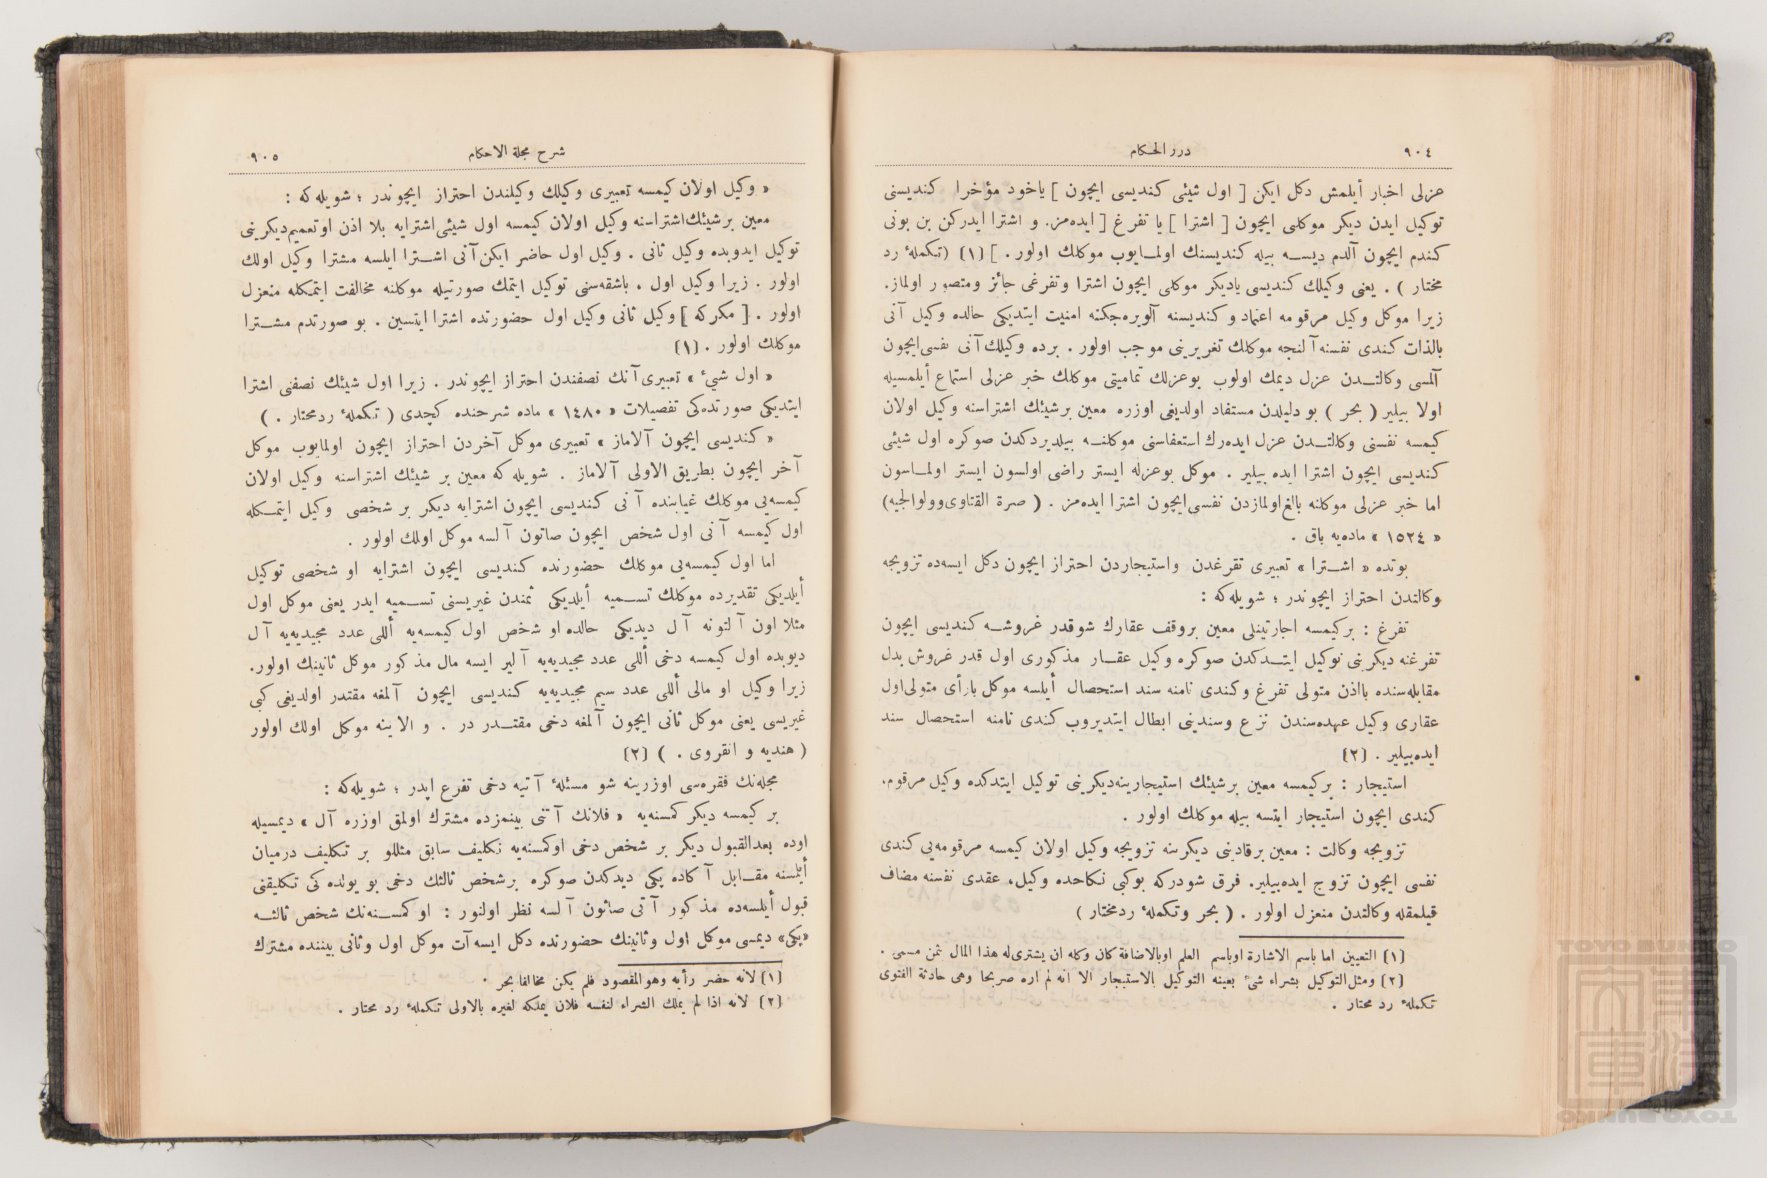 ٩٠٤
درر الحكام
عزلی اخبار أيلمش دكل ايكن [ اول شیئی كنديسی ايچون ] ياخود مؤخرا كنديسنی
توكيل ايدن ديكر موكلی ايچون [ اشترا ] يا تفرغ [ ايده‌مز. و اشترا ايدركن بن بونی
كندم ايچون آلدم ديسه بيله كنديسنك اولمايوب موكلك اولور . ] (١) (تكملهٔ رد
مختار ) . يعنی وكيلك كنديسی ياديكر موكلی ايچون اشترا وتفرغی جائز ومتصور اولماز.
زيرا موكل وكيل مرقومه اعتماد وكنديسنه آلويره‌جكنه امنيت ايتديكی حالده وكيل آنی
بالذات كندی نفسنه آلنجه موكلك تغريرينی موجب اولور . برده وكيلك آنی نفسی‌ايچون
آلمسی وكالتدن عزل ديمك اولوب بوعزلك تماميتی موكلك خبر عزلی استماع أيلمسيله
اولا بيلير ( بحر ) بو دليلدن مستفاد اولديغی اوزره معين برشيئك اشتراسنه وكيل اولان
كيمسه نفسنی وكالتدن عزل ايده‌رك استعفاسنی موكلنه بيلديردكدن صوكره اول شيئی
كنديسی ايچون اشترا ايده بيلير . موكل بوعزله ايستر راضی اولسون ايستر اولماسون
اما خبر عزلی موكلنه بالغ‌اولمازدن نفسی‌ايچون اشترا ايده‌مز . ( صرة الفتاوی‌وولوالجيه)
« ١٥٢٤ » ماده‌يه باق .
بونده « اشترا » تعبيری تفرغدن واستيجاردن احتراز ايچون دكل ايسه‌ده تزويجه
وكالتدن احتراز ايچوندر ؛ شويله‌كه :
تفرغ : بركيمسه اجارتينلی معين بروقف عقارك شوقدر غروشه كنديسی ايچون
تفرغنه ديكرينی توكيل ايتدكدن صوكره وكيل عقار مذكوری اول قدر غروش بدل
مقابله‌سنده بااذن متولی تفرغ وكندی نامنه سند استحصال أيلسه موكل بارأی متولی‌اول
عقاری وكيل عهده‌سندن نزع وسندينی ابطال ايتديروب كندی نامنه استحصال سند
ايده‌بيلير . (٢)
استيجار : بركيمسه معين برشيئك استيجارينه‌ديكرينی توكيل ايتدكده وكيل مرقوم.
كندی ايچون استيجار ايتسه بيله موكلك اولور .
تزويجه وكالت : معين برقادينی ديكرينه تزويجه وكيل اولان كيمسه مرقومه‌يی كندی
نفسی ايچون تزوج ايده‌بيلير. فرق شودركه بوكبی نكاحده وكيل، عقدی نفسنه مضاف
قيلمقله وكالتدن منعزل اولور . ( بحر وتكملهٔ ردمختار )
(١) التعيين اما باسم الاشارة اوباسم العلم اوبالاضافة كان وكله ان يشتری‌له هذا المال ثمن مسمی .
(٢) ومثل‌التوكيل بشراء شیٔ بعينه التوكيل بالاستيجار الا انه لم اره صريحا وهی حادثة الفتوی
تكملهٔ رد مختار .
شرح مجلة الاحكام
٩٠٥
« وكيل اولان كيمسه تعبيری وكيلك وكيلندن احتراز ايچوندر ؛ شويله‌كه :
معين برشيئك‌اشتراسنه وكيل اولان كيمسه اول شيئی‌اشترايه بلا اذن اوتعميم‌ديكرينی
توكيل ايدوبده وكيل ثانی . وكيل اول حاضر ايكن آنی اشترا ايلسه مشترا وكيل اولك
اولور . زيرا وكيل اول ، باشقه‌سنی توكيل ايتمك صورتيله موكلنه مخالفت ايتمكله منعزل
اولور . [ مكركه ] وكيل ثانی وكيل اول حضورنده اشترا ايتسين . بو صورتدم مشترا
موكلك اولور . (١)
« اول شیٔ » تعبيری‌آنك نصفندن احتراز ايچوندر . زيرا اول شيئك نصفنی اشترا
ايتديكی صورتده‌كی تفصيلات « ١٤٨٠ » ماده شرحنده كچدی ( تكملهٔ ردمختار . )
« كنديسی ايچون آلاماز » تعبيری موكل آخردن احتراز ايچون اولمايوب موكل
آخر ايچون بطريق الاولی آلاماز . شويله كه معين بر شيئك اشتراسنه وكيل اولان
كيمسه‌يی موكلك غيابنده آنی كنديسی ايچون اشترايه ديكر بر شخصی وكيل ايتمكله
اول كيمسه آنی اول شخص ايچون صاتون آلسه موكل اولك اولور .
اما اول كيمسه‌يی موكلك حضورنده كنديسی ايچون اشترايه او شخصی توكيل
أيلديكی تقديرده موكلك تسميه أيلديكی ثمندن غيريسنی تسميه ايدر يعنی موكل اول
مثلا اون آلتونه آل ديديكی حالده او شخص اول كيمسه‌يه أللی عدد مجيديه‌يه آل
ديوبده اول كيمسه دخی أللی عدد مجيديه‌يه آلير ايسه مال مذكور موكل ثانينك اولور.
زيرا وكيل او مالی أللی عدد سيم مجيديه‌يه كنديسی ايچون آلمغه مقتدر اولديغی كبی
غيريسی يعنی موكل ثانی ايچون آلمغه دخی مقتدر در . و الا ينه موكل اولك اولور
( هنديه و انقروی . ) (٢)
مجله‌نك فقره‌سی اوزرينه شو مسئلهٔ آتيه دخی تفرع ايدر ؛ شويله‌كه :
بر كيمسه ديكر كمسنه‌يه « فلانك آتنی بينمزده مشترك اولمق اوزره آل » ديمسيله
اوده بعدالقبول ديكر بر شخص دخی اوكمسنه‌يه تكليف سابق مثللو بر تكليف درميان
أيلمسنه مقابل آكاده پكی ديدكدن صوكره برشخص ثالثك دخی بو يولده كی تكليفنی
قبول أيلسه‌ده مذكور آتی صاتون آلسه نظر اولنور : او كمسنه‌نك شخص ثالثه
«پكی» ديمسی موكل اول وثانينك حضورنده دكل ايسه‌آت موكل اول وثانی بيننده مشترك
(١) لانه حضر رأيه وهوالمقصود فلم يكن مخالفا بحر .
(٢) لانه اذا لم يملك الشراء لنفسه فلان يملكه لغيره بالاولی تكملهٔ رد مختار .
TOYO BUNKO
TOYO BUNKO